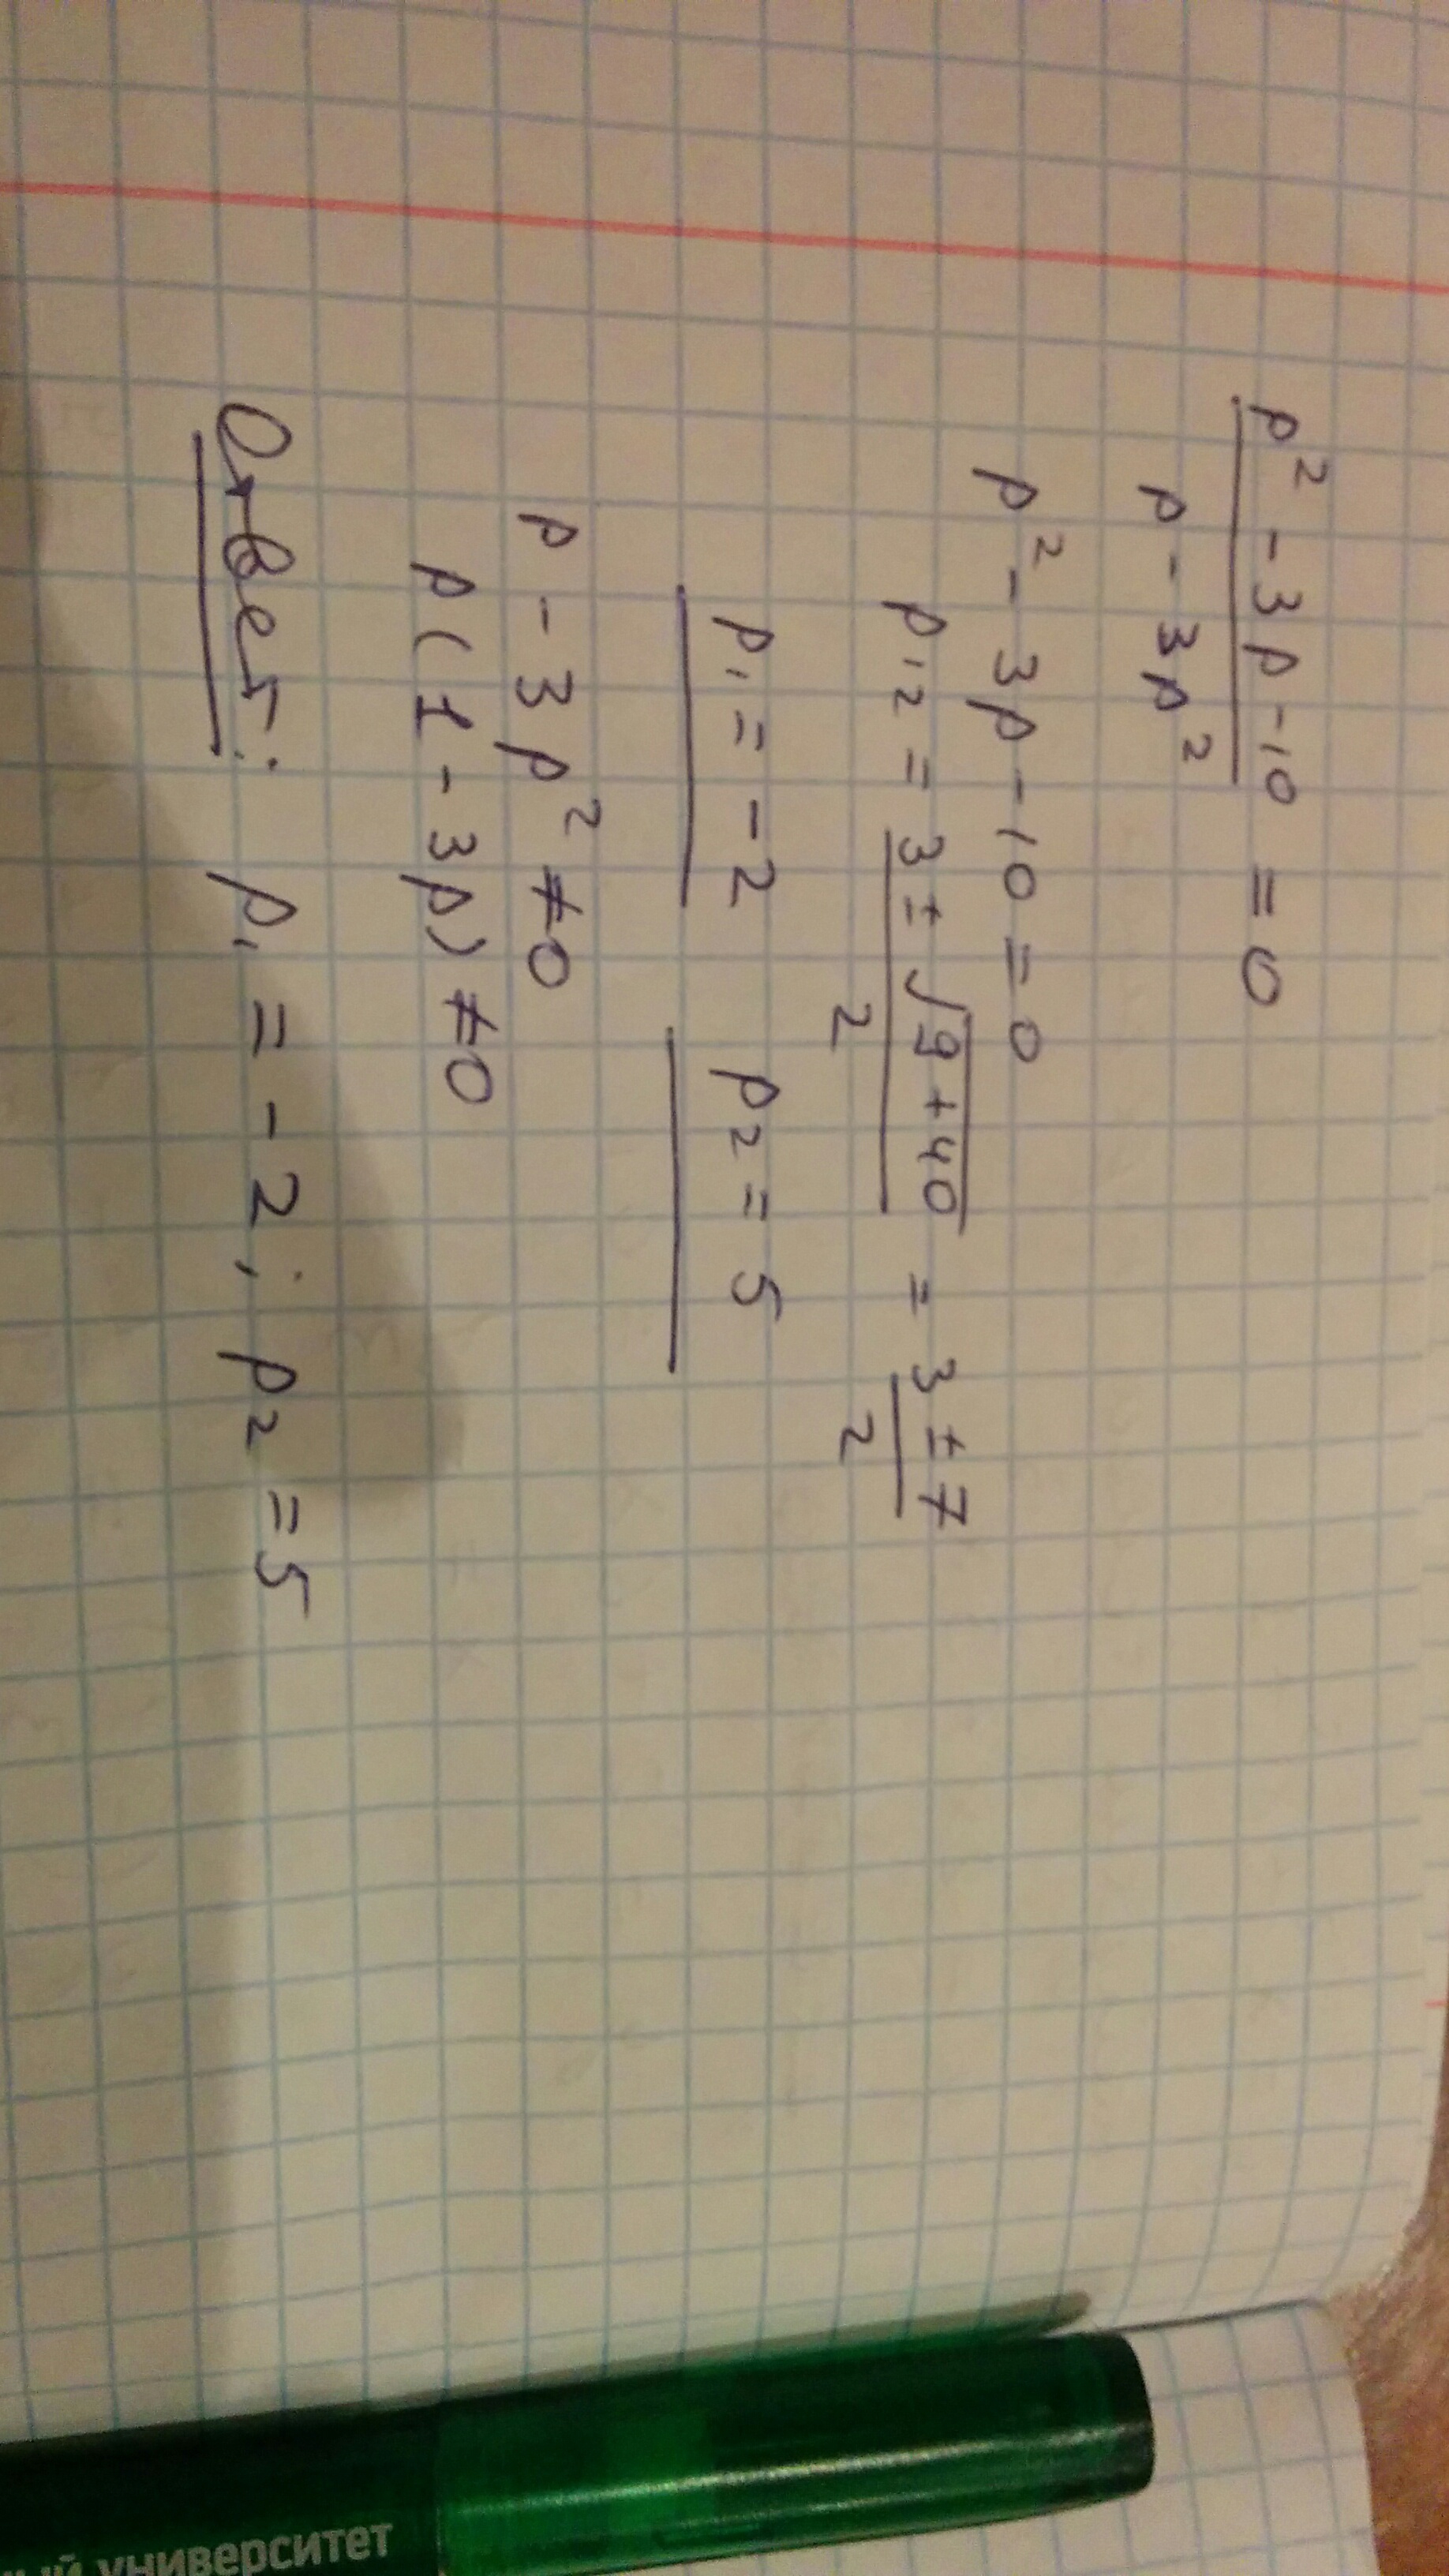 p² - 3p - 10 = 0
p - 3p²
p² - 3p - 10 = 0
p₁₂ = 3 ± √9+40 = 3 ± 7
2 2
p₁ = -2 p₂ = 5
p - 3p² ≠ 0
p(1 - 3p) ≠ 0
Ответ: p₁ = -2; p₂ = 5
университет